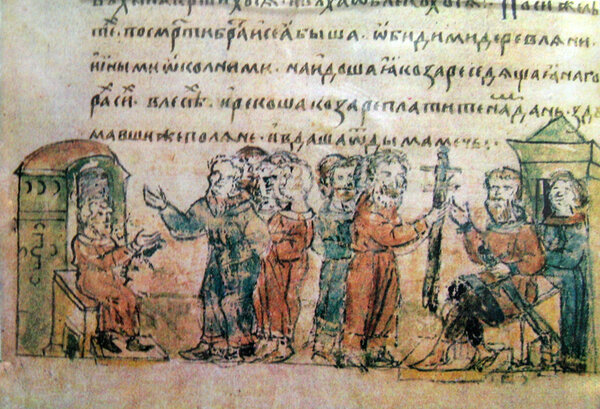 По сиⷯ же лѣ
тѣ. по смрт҃и браⷮи сеꙗ быша. ѡбидими деревлѧни.
иными ѡколними. наидоша ꙗ козаре седѧща на го
раⷯ сиⷯ. в лесѣⷯ. и рекоша козаре платите наⷨ дань. здꙋ
мавши же полѧне. и вдаша ѿ дыма мечь:.